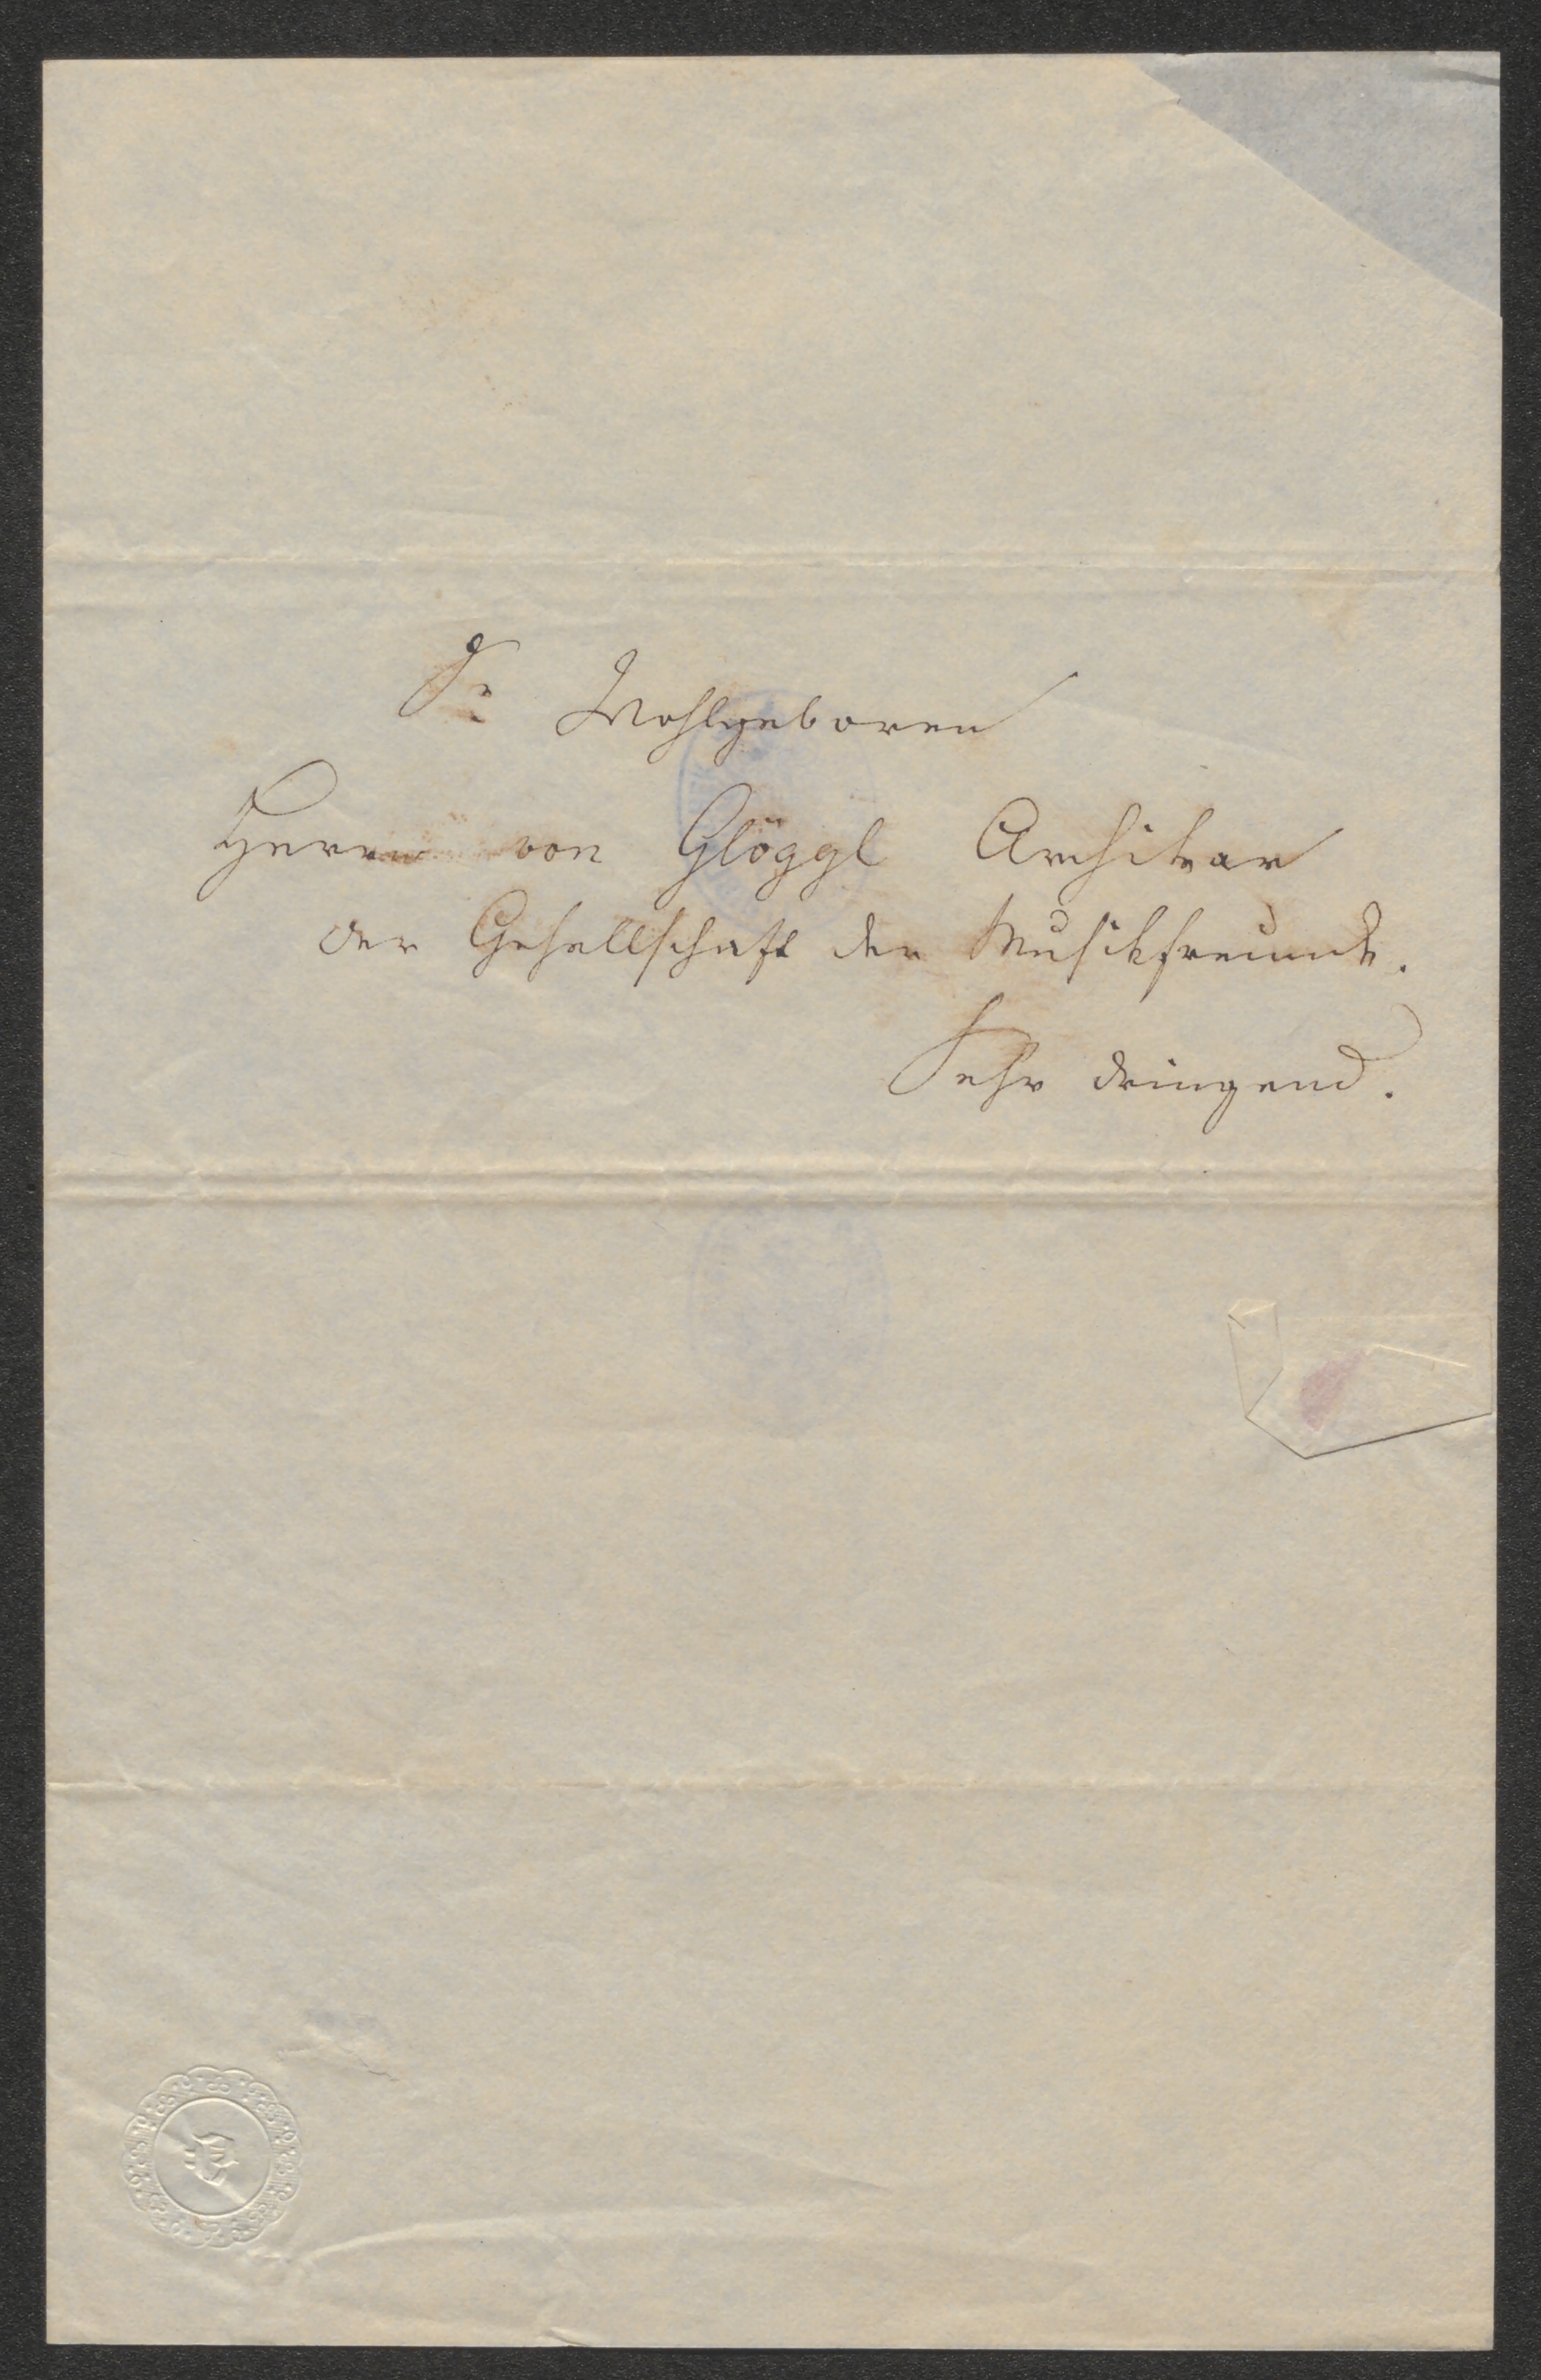 Sr Wohlgeboren
Herrn von Glöggl Archivar
der Gesellschaft der Musikfreunde.
Sehr dringend.